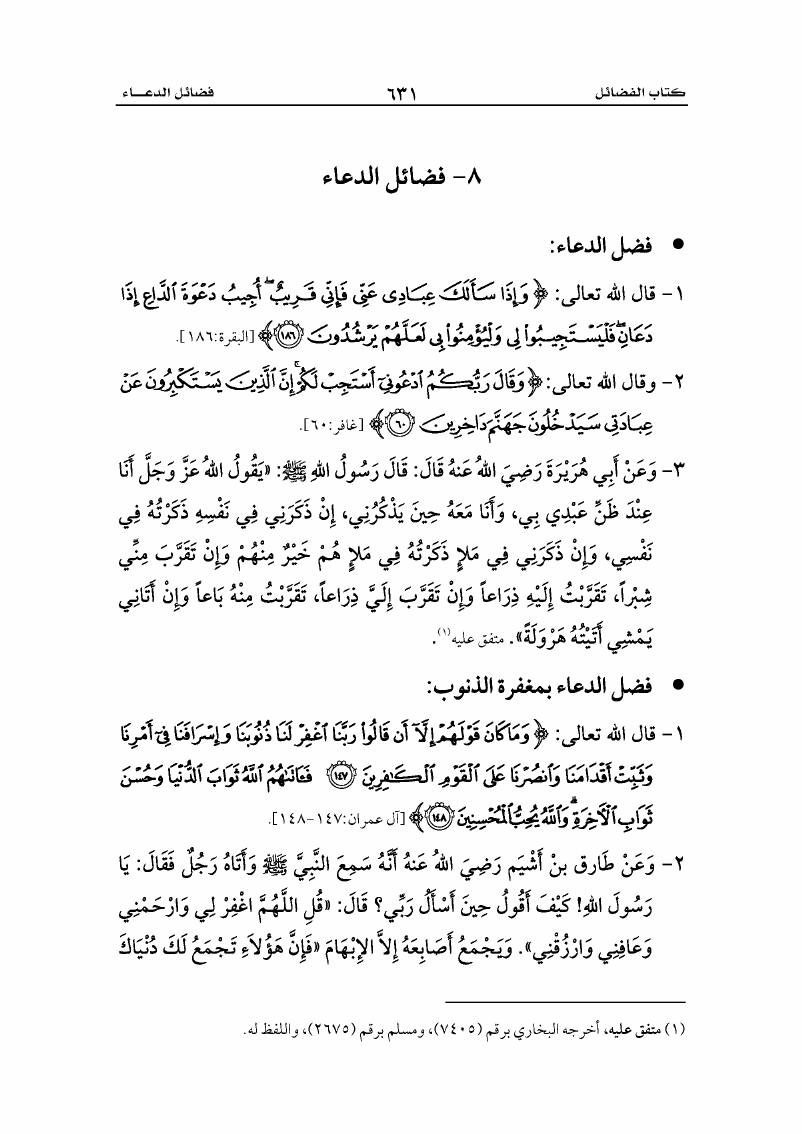 كتاب الفضائل ٦٣١ فضائل الدعـــاء
٨- فضائل الدعاء
• فضل الدعاء:
١- قال الله تعالى: ﴿ وَإِذَا سَأَلَكَ عِبَادِى عَنِّى فَإِنِّى قَرِيبٌ ۖ أُجِيبُ دَعْوَةَ ٱلدَّاعِ إِذَا
دَعَانِ ۖ فَلْيَسْتَجِيبُوا۟ لِى وَلْيُؤْمِنُوا۟ بِى لَعَلَّهُمْ يَرْشُدُونَ ١٨٦ ﴾ [البقرة:١٨٦].
٢- وقال الله تعالى: ﴿ وَقَالَ رَبُّكُمُ ٱدْعُونِىٓ أَسْتَجِبْ لَكُمْ ۚ إِنَّ ٱلَّذِينَ يَسْتَكْبِرُونَ عَنْ
عِبَادَتِى سَيَدْخُلُونَ جَهَنَّمَ دَاخِرِينَ ٦٠ ﴾ [غافر:٦٠].
٣- وَعَنْ أَبِي هُرَيْرَةَ رَضِيَ اللهُ عَنهُ قَالَ: قَالَ رَسُولُ اللهِ ﷺ: «يَقُولُ اللهُ عَزَّ وَجَلَّ أَنَا
عِنْدَ ظَنِّ عَبْدِي بِي، وَأَنَا مَعَهُ حِينَ يَذْكُرُنِي، إِنْ ذَكَرَنِي فِي نَفْسِهِ ذَكَرْتُهُ فِي
نَفْسِي، وَإِنْ ذَكَرَنِي فِي مَلإٍ ذَكَرْتُهُ فِي مَلإٍ هُمْ خَيْرٌ مِنْهُمْ وَإِنْ تَقَرَّبَ مِنِّي
شِبْراً، تَقَرَّبْتُ إِلَيْهِ ذِرَاعاً وَإِنْ تَقَرَّبَ إِلَيَّ ذِرَاعاً، تَقَرَّبْتُ مِنْهُ بَاعاً وَإِنْ أَتَانِي
يَمْشِي أَتَيْتُهُ هَرْوَلَةً». متفق عليه(١).
• فضل الدعاء بمغفرة الذنوب:
١- قال الله تعالى: ﴿ وَمَا كَانَ قَوْلَهُمْ إِلَّآ أَن قَالُوا۟ رَبَّنَا ٱغْفِرْ لَنَا ذُنُوبَنَا وَإِسْرَافَنَا فِىٓ أَمْرِنَا
وَثَبِّتْ أَقْدَامَنَا وَٱنصُرْنَا عَلَى ٱلْقَوْمِ ٱلْكَٰفِرِينَ ١٤٧ فَـَٔاتَىٰهُمُ ٱللَّهُ ثَوَابَ ٱلدُّنْيَا وَحُسْنَ
ثَوَابِ ٱلْـَٔاخِرَةِ ۗ وَٱللَّهُ يُحِبُّ ٱلْمُحْسِنِينَ ١٤٨ ﴾ [آل عمران:١٤٧-١٤٨].
٢- وَعَنْ طَارِقِ بنْ أَشْيَم رَضِيَ اللهُ عَنهُ أَنَّهُ سَمِعَ النَّبِيَّ ﷺ وَأَتَاهُ رَجُلٌ فَقَالَ: يَا
رَسُولَ اللهِ! كَيْفَ أَقُولُ حِينَ أَسْأَلُ رَبِّي؟ قَالَ: «قُلِ اللَّهُمَّ اغْفِرْ لِي وَارْحَمْنِي
وَعَافِنِي وَارْزُقْنِي». وَيَجْمَعُ أَصَابِعَهُ إِلاَّ الإِبْهَامَ «فَإِنَّ هَؤُلاَءِ تَجْمَعُ لَكَ دُنْيَاكَ
(١) متفق عليه، أخرجه البخاري برقم (٧٤٠٥)، ومسلم برقم (٢٦٧٥)، واللفظ له.